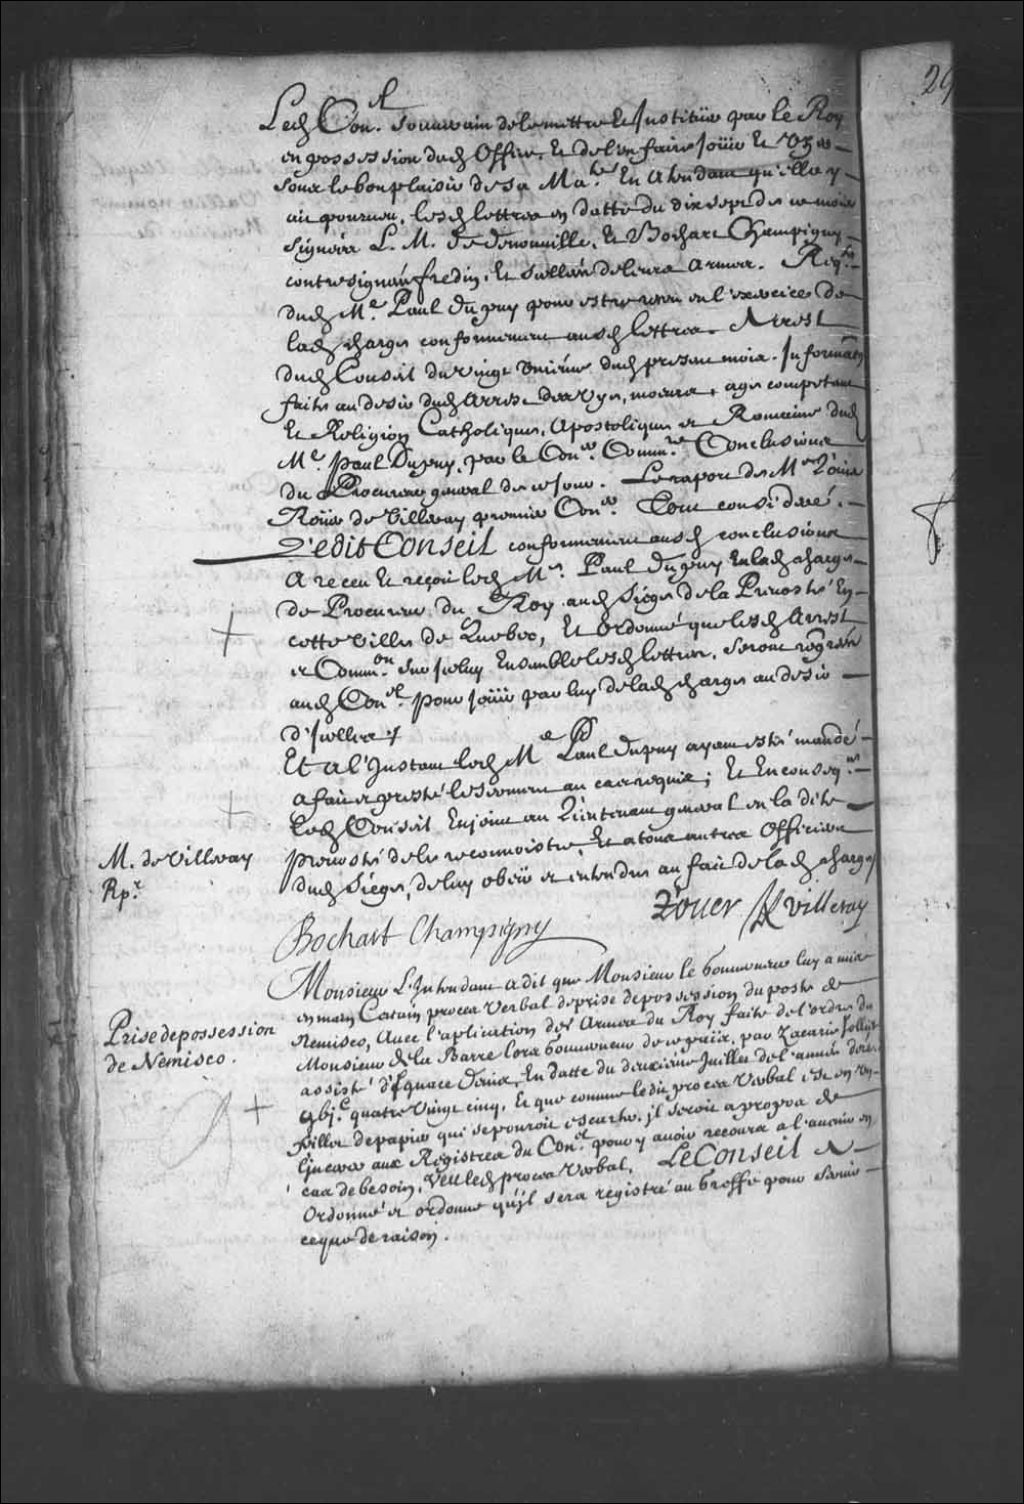 29
Led Con.el Souuerain de le mettre et Instituer par le Roy
en possession dud Office, et de l'en faire joüir et Vzer
soux le bon plaisir de sa Ma.té En attendant qu'elle y
ait pourueu, lesd lettres en datte du dix sept de ce mois
signées L. M. de denonuille, et Bochart Champigny
contresignées fredin, et scellées de leurs armes. Req.te
dud M.e Paul Dupuy pour estre receu en l'exercice de
lad charge conformement ausd lettres. Arrest
dud Conseil du vingt uniéme dud present mois. Information
faite au desir dud Arrest des vye, moeurs, age competant
et Religion Catholique, Apostolique et Romaine dud
M.e Paul Dupuy, par le Con.er Comm.re Conclusions
du Procureur general de ce jour. Le raport de M.e Loüis
Roüer de Villeray premier Con.er Tout consideré.
Ledit Conseil conformement ausd conclusions
A receu et reçoit led M.e Paul Dupuy en lad charge
de Procureur du Roy aud Siege de la Preuosté En
cette ville de Quebec, Et Ordonné que lesd Arrest
et Comm.on sur iceluy Ensemble lesd lettres, seront registrées
aud Con.el pour joüir par luy de lad charge au desir
d'Icelles /
Et a l'Instant led M.e Paul Dupuy ayant esté mandé
a fait et presté le serment au cas requis; Et En conseq.ce
led Conseil Enjoint au Lieutenant general en la dite
preuosté de le reconnoistre, Et a tous autres Officiers
dud Siége, de luy obeir et entendre au fait de lad charge
M. de Villeray
Rp.r
Roüer de Villeray
Bochart Champigny
Monsieur L'Intendant a dit que Monsieur le Gouuerneur luy a mis
en main Certain procez Verbal de prise de possession du poste de
Nemisco, Auec l'aplication des Armes du Roy faite de l'ordre de
Monsieur de la Barre lors Gouuerneur de ce païs, par Zacarie Jolliet
assisté d'Ignace Denis, En datte du deuxiéme Juillet de l'année derniere
gbj.c quatre Vingt cinq, Et que comme ledit procez Verbal est en vne
feille de papier qui se pouroit escarter, il seroit a propos de
l'Inserer aux Registres du Con.el pour y auoir recours a l'auenir en
cas de besoin, Veu led procez Verbal, Le Conseil A
Ordonné et ordonne qu'il sera registré au Greffe pour seruir
ce que de raison.
Prise de possession
de Nemisco.